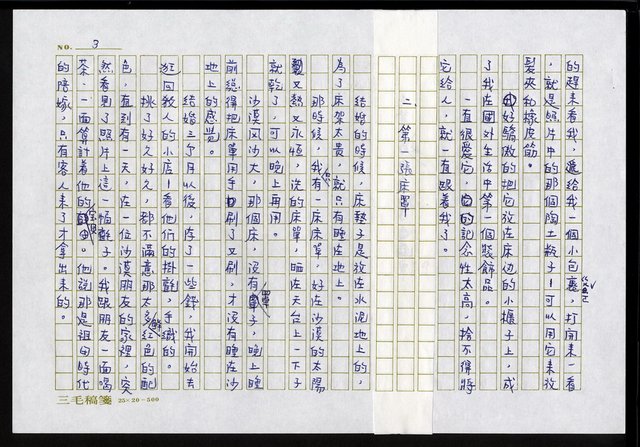 NO. 3
的趕來看我，還給我一個小包裹，打開來一看
，就是照片中的那個陶土瓶子！可以用它來放
髮夾和橡皮筋。
好驕傲的把它放在床邊的小櫃子上，成
了我在國外生活中第一個裝飾品。
一直很愛它，的記念性太高，捨不得將
它給人，就一直跟著我了。
二、第一張床罩
結婚的時候，床墊子是放在水泥地上的，
為了床架太貴，就只有睡在地上。
那時候，我只有一床床單，好在沙漠的太陽
又熱又永恆，洗的床單，晒在天台上一下子
就乾了，可以晚上再用。
沙漠風沙大，那個床，沒有罩子，晚上睡
前總得把床單用手刷了又刷，才沒有睡在沙
地上的感覺。
結婚三個月以後，存了一些錢，我開始去
逛回教人的小店！看他們的掛氈，手織的。
挑了好久好久，都不滿意那太多鮮紅色的配
色，直到有一天，在一位沙漠朋友的家裡，突
然看見了照片上這一幅氈子。我跟朋友一面喝
茶，一面算計著他的。他說那是祖母時代
的陪嫁，只有客人來了才拿出來的。
三毛稿箋 25×20=500